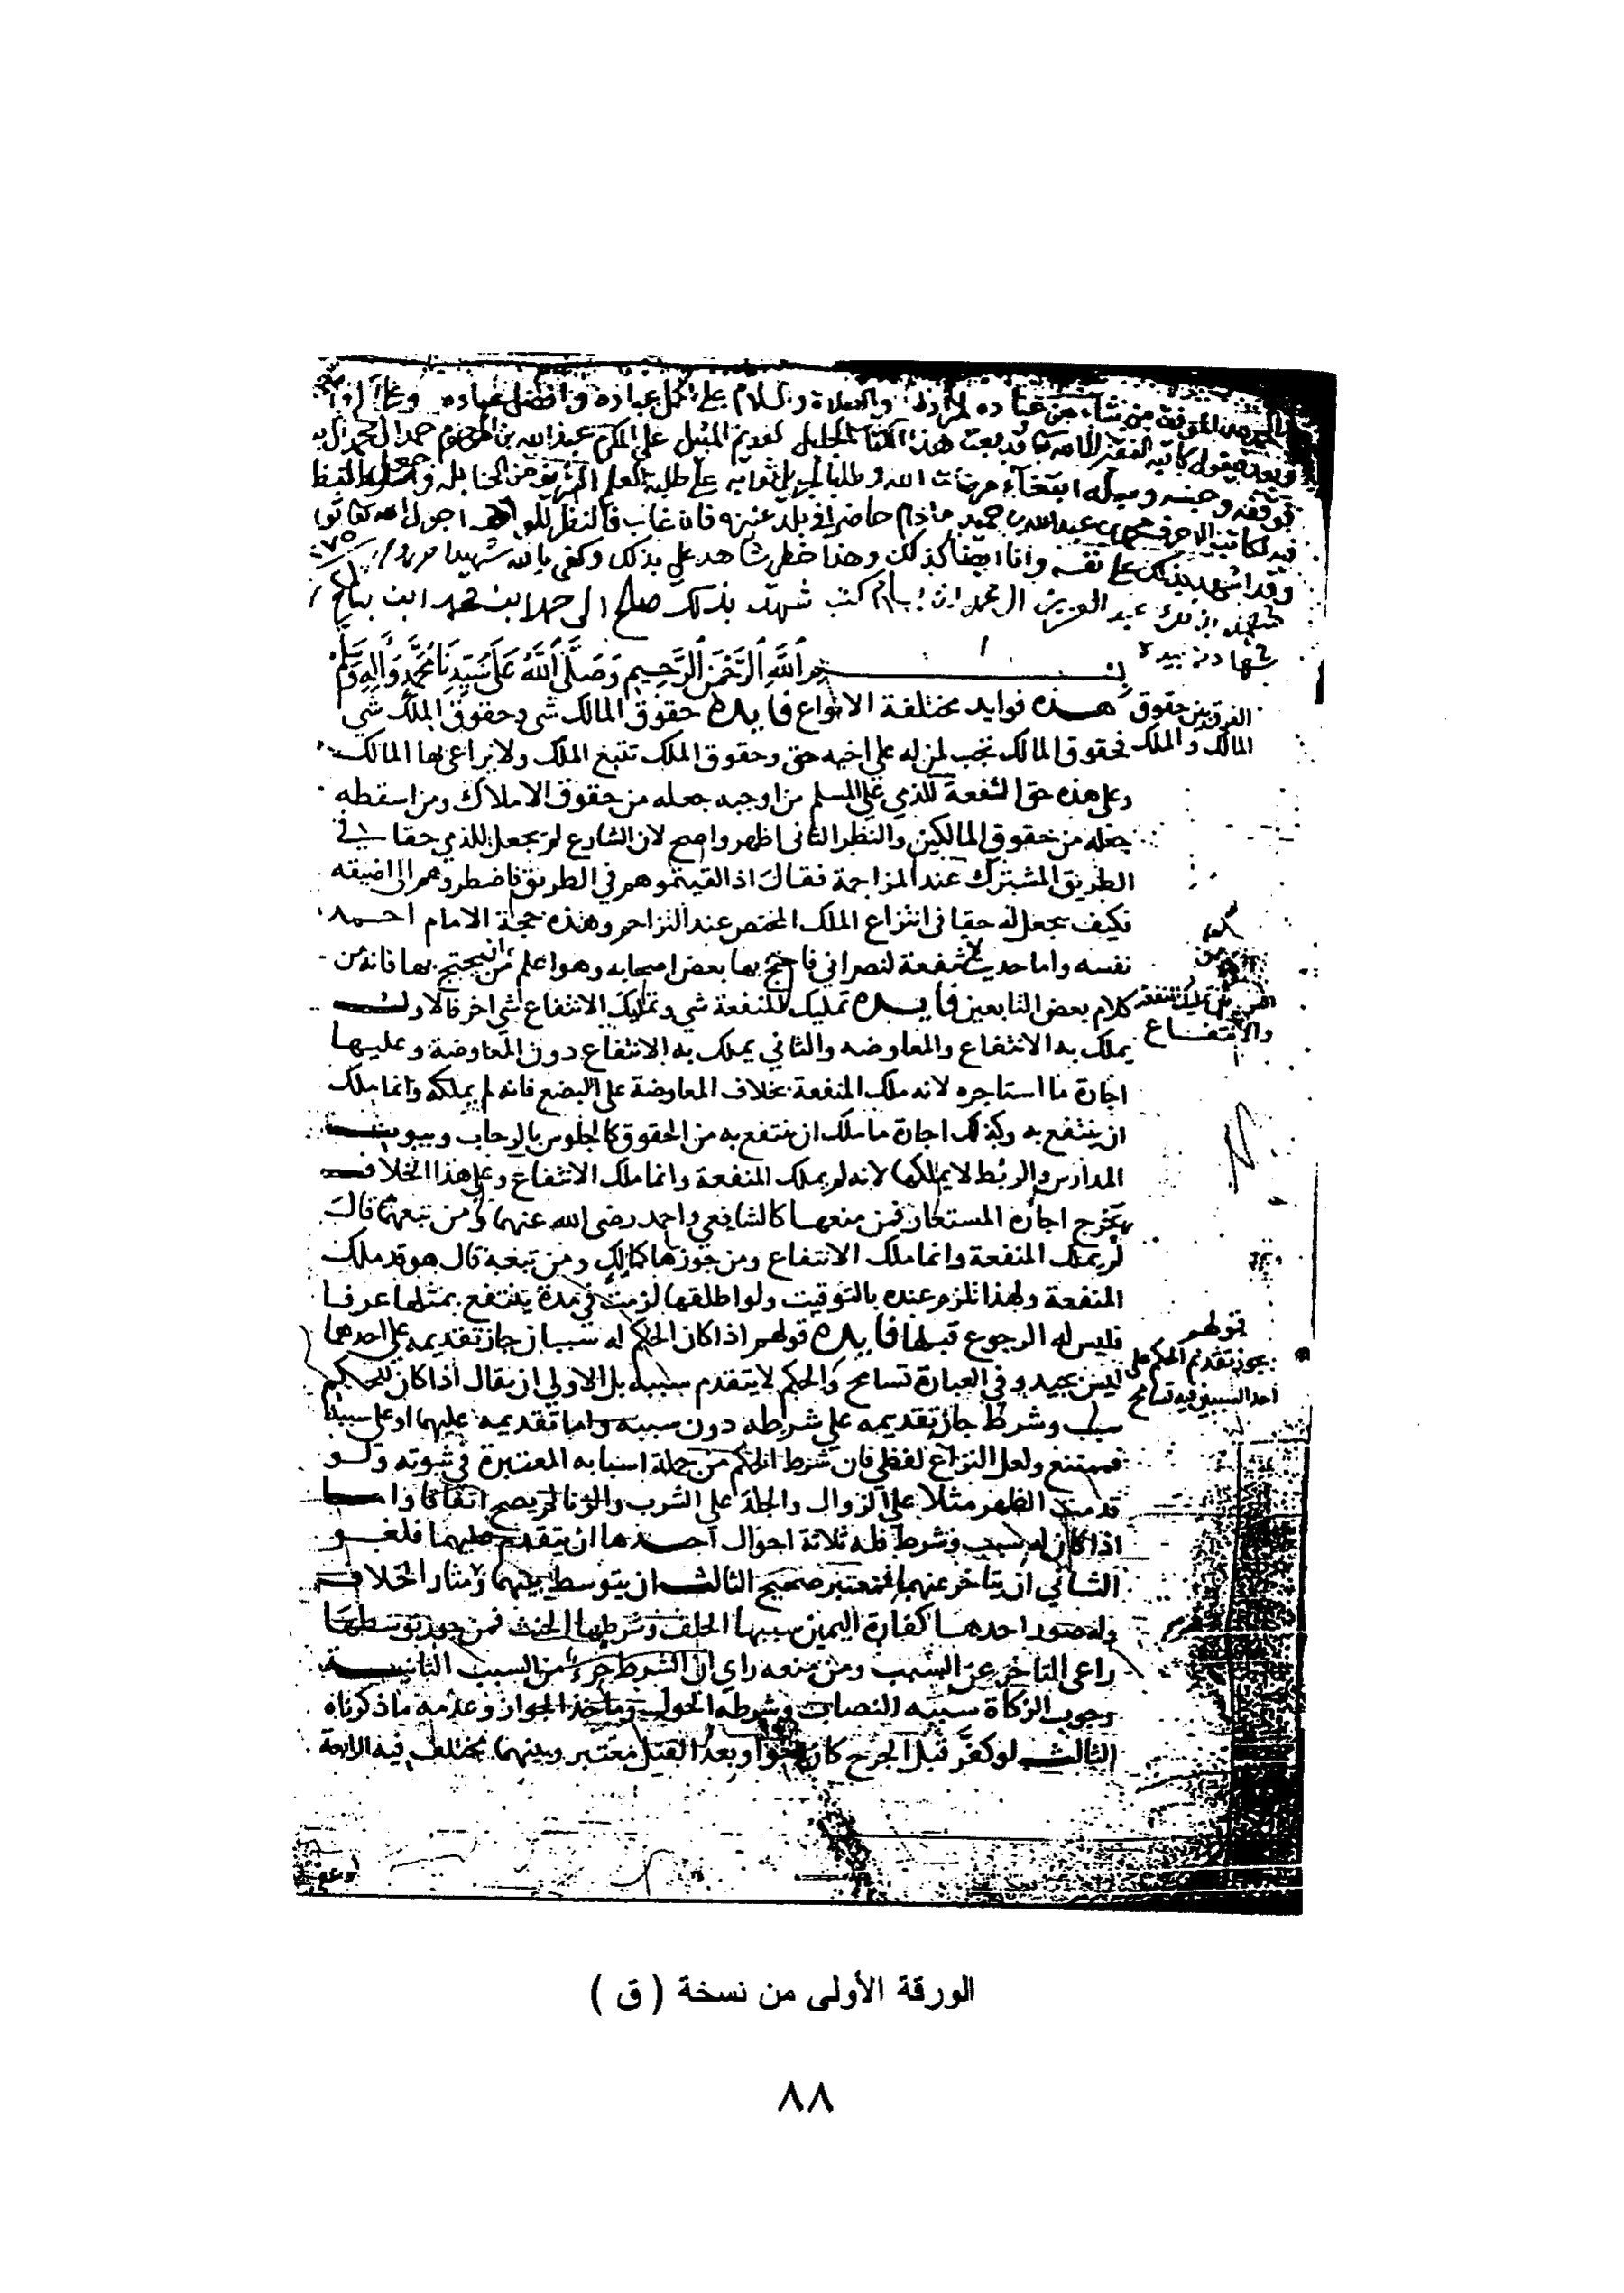 الموفق من يشاء من عباده والصلاة والسلام على اكمل عباده وافضل عباده
وبعد فيقول كاتبه الفقير قد بعت هذا الجليل على المكرم عبد الله بن المرحوم حمد ال
فوقفه وحبسه وسبله ابتغاء مرضات الله وطلبا لجزيل ثوابه على طلبة العلم من الحنابله
فيه لكاتبه الاحرف بن عبد الله بن حميد مادام حاضرا في بلد عنيزه فان غاب فالنظر للواقف
وقد اشهد بذلك على نفسه وانا ايضا كذلك وهذا خطي شاهد علي بذلك وكفى بالله شهيدا
شهد بذلك عبد العزيز ال محمد ابن بسام كتب شهد بذلك صالح الى حمد ابن محمد ابن
شهادته بيده
بسم الله الرحمن الرحيم وصلى الله على سيدنا محمد واله وسلم
الفرق بين حقوق
المالك والملك
هذه فوايد مختلفة الانواع فايده حقوق المالك شي وحقوق الملك شي
فحقوق المالك تجب لمن له على اخيه حق وحقوق الملك تتبع الملك ولا يراعى بها المالك
وعلى هذه حق الشفعة للذمي على المسلم من اوجبه جعله من حقوق الاملاك ومن اسقطه
جعله من حقوق المالكين والنظر الثاني اظهر واصح لان الشارع لم يجعل للذمي حقا في
الطريق المشترك عند المزاحمة فقال اذا لقيتموهم في الطريق فاضطروهم الى اضيقه
فكيف يجعل له حقا في انتزاع الملك المختص عند التزاحم وهذه حجة الامام احمد
نفسه واما حديث لا شفعة لنصراني فاحتج بها بعض اصحابه وهو اعلم من ان يحتج بها فانه من
كلام بعض التابعين فايده تمليك المنفعة شي وتمليك الانتفاع شي اخر فالاول
تمليك المنفعة
والانتفاع
يملك به الانتفاع والمعاوضه والثاني يملك به الانتفاع دون المعاوضة وعليها
اجارة ما استاجره لانه ملك المنفعة بخلاف المعاوضة على البضع فانه لم يملكه وانما ملك
ان ينتفع به وكذلك اجارة ما ملك ان ينتفع به من الحقوق كالجلوس بالرحاب وبيوت
المدارس والربط لا يملكها لانه لم يملك المنفعة وانما ملك الانتفاع وعلى هذا الخلاف
يخرج اجارة المستعار فمن منعها كالشافعي واحمد رضي الله عنهما ومن تبعهما قال
لم يملك المنفعة وانما ملك الانتفاع ومن جوزها كمالك ومن تبعه قال هو قد ملك
المنفعة ولهذا تلزم عنده بالتوقيت ولو اطلقها لزمت في مدة ينتفع بمثلها عرفا
فليس له الرجوع قبلها فايده قولهم اذا كان الحكم له سببان جاز تقديمه على احدهما
قولهم
يجوز تقديم الحكم على
احد السببين فيه تسامح
ليس بجيد وفي العبارة تسامح والحكم لا يتقدم سببه بل الاولى ان يقال اذا كان للحكم
سبب وشرط جاز تقديمه على شرطه دون سببه واما تقديمه عليهما او على سببه
فممتنع ولعل النزاع لفظي فان شرط الحكم من جملة اسبابه المعتبرة في ثبوته ولو
قدمت الظهر مثلا على الزوال والجلد على الشرب والزنا لم يصح اتفاقا واما
اذا كان له سبب وشرط فله ثلاثة احوال احدها ان يتقدم عليهما فلغو
الثاني ان يتاخر عنهما فمعتبر صحيح الثالث ان يتوسط بينهما ومثار الخلاف
وله صور احدها كفارة اليمين سببها الحلف وشرطها الحنث فمن جوز توسطها
راعى التاخر عن السبب ومن منعه راى ان الشرط جزء من السبب الثانية
وجوب الزكاة سببه النصاب وشرطه الحول وماخذ الجواز وعدمه ما ذكرناه
الثالث لو كفر قبل الجرح كان لغوا وبعد القتل معتبر وبينهما مختلف فيه الرابعة
لو عفى
الورقة الأولى من نسخة ( ق )
٨٨